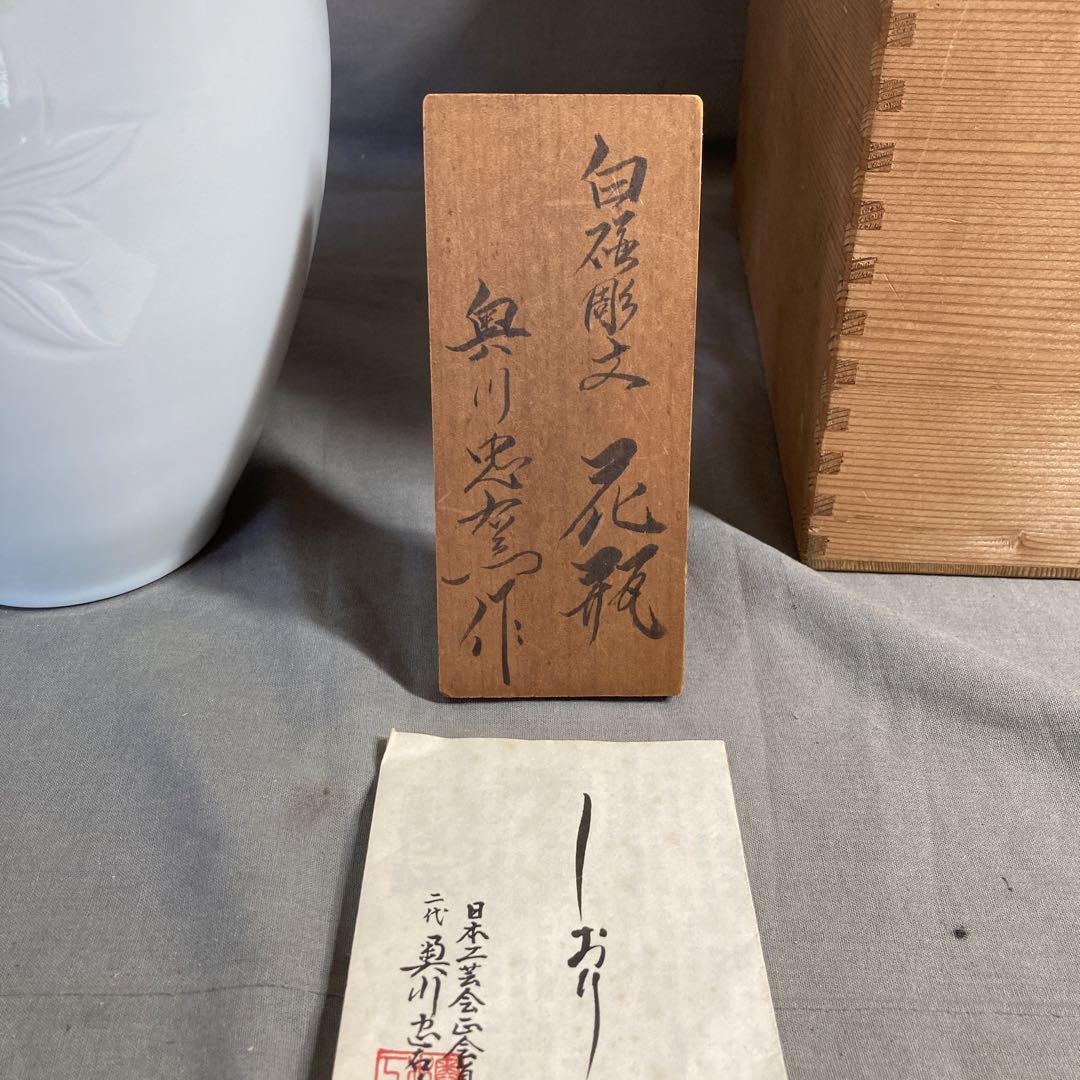 白磁彫文 花瓶
奥川忠窯作
しおり
日本工芸会正会員
二代 奥川忠右